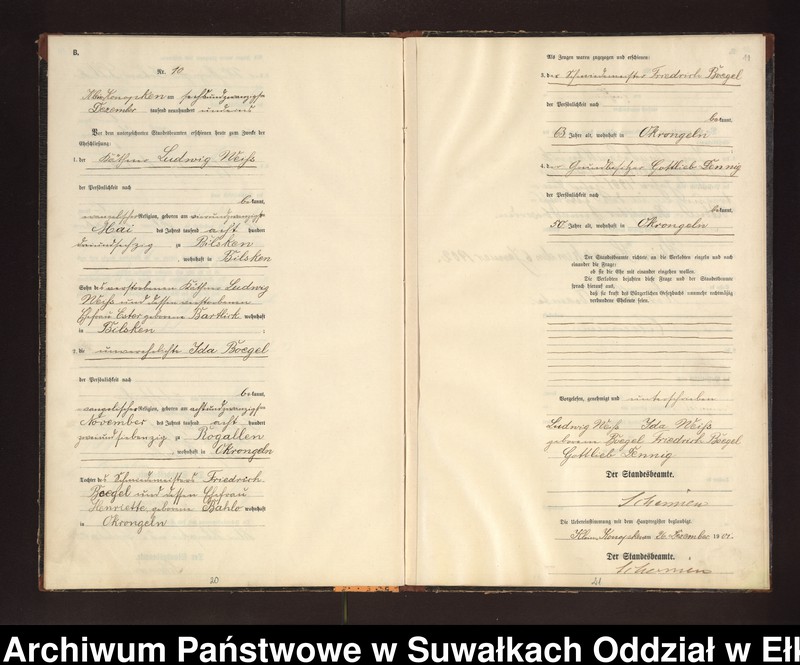 8.
Nr. 10
Klein Konopken am sechsundzwanzigsten
Dezember tausend neunhundert und eins
Vor dem unterzeichneten Standesbeamten erschienen heute zum Zwecke der
Eheschließung:
1. der Käthner Ludwig Weiß
der Persönlichkeit nach
be kannt,
evangelischer Religion, geboren am vierundzwanzigsten
Mai des Jahres tausend acht hundert
zu Bilsken
, wohnhaft in Bilsken
Sohn des verstorbenen Käthners Ludwig
Weiß und dessen verstorbenen
Ehefrau Ester geborene wohnhaft
in Bilsken ;
2. die unverehelichte Ida Boegel
der Persönlichkeit nach
be kannt,
evangelischer Religion, geboren am achtundzwanzigsten
November des Jahres tausend acht hundert
zweiundsiebenzig zu Rogallen
, wohnhaft in Okrongeln
Tochter des Schmiedemeisters Friedrich
Boegel und dessen Ehefrau
Henriette, geborene Bahlo wohnhaft
in Okrongeln
20
Als Zeugen waren zugezogen und erschienen:
3. der Schmiedemeister Friedrich Boegel
der Persönlichkeit nach
be kannt,
63 Jahre alt, wohnhaft in Okrongeln
;
4. der Grundbesitzer Gottlieb Fennig
der Persönlichkeit nach
be kannt,
50 Jahre alt, wohnhaft in Okrongeln
Der Standesbeamte richtete an die Verlobten einzeln und nach
einander die Frage:
ob sie die Ehe mit einander eingehen wollen.
Die Verlobten bejahten diese Frage und der Standesbeamte
sprach hierauf aus,
daß sie kraft des Bürgerlichen Gesetzbuchs nunmehr rechtmäßig
verbundene Eheleute seien.
Vorgelesen, genehmigt und unterschrieben
Ludwig Weiß Ida Weiß
geborene Böegel Friedrich Böegel
Gottlieb Fennig
Der Standesbeamte.
Schemien
Die Uebereinstimmung mit dem Hauptregister beglaubigt
Klein Konopken am 26. Dezember 1901.
Der Standesbeamte.
Schemien
21
Archiwum Państwowe w Suwałkach Oddział w Ełk